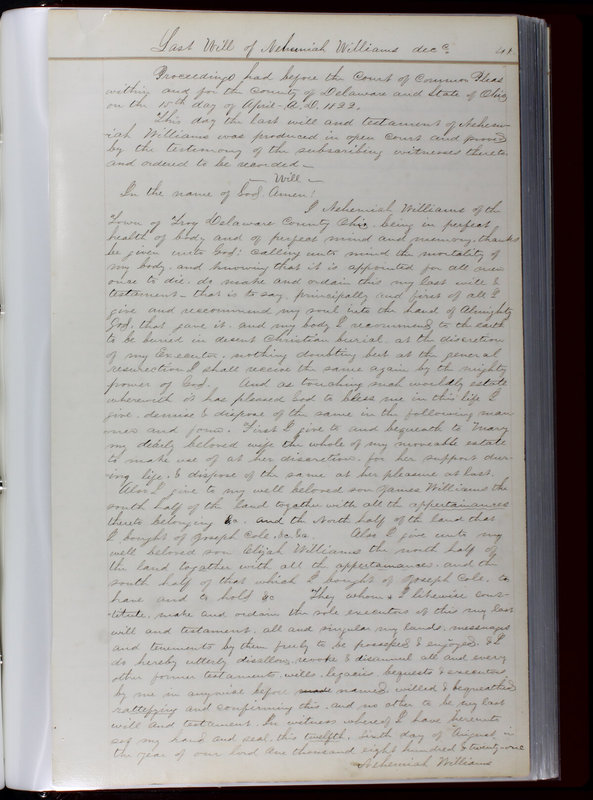 Last Will of Nehemiah Williams dec^d.
Proceedings had before the Court of Common Pleas
within and for the County of Delaware and State of Ohio
on the 15th day of April A.D. 1822.
This day the last will and testament of Nehem-
iah Williams was produced in open Court and proved
by the testimony of the subscribing witnesses thereto
and ordered to be recorded—
— Will —
In the name of God Amen!
I Nehemiah Williams of the
Town of Troy Delaware County Ohio, being in perfect
health of body and of perfect mind and memory, thanks
be given unto God; Calling unto mind the mortality of
my body, and knowing that it is appointed for all men
once to die, do make and ordain this my last will &
testament— that is to say, principally and first of all I
give and reccommend my soul into the hand of Almighty
God, that gave it, and my body I recommend to the earth
to be buried in desent Christian burial, at the discretion
of my Executor, nothing doubting but at the general
resurrection I shall receive the same again by the mighty
power of God. And as touching such worldly estate
wherewith it has pleased God to bless me in this life I
give, demise & dispose of the same in the following man
ner and form. First I give to and bequeath to Mary
my dearly beloved wife the whole of my moveable estate
to make use of at her discretion, for her support dur-
ing life, & dispose of the same at her pleasure at last.
Also I give to my well beloved son James Williams the
south half of the land togather with all the appertainances
thereto belonging &c. and the North half of the land that
I bought of Joseph Cole, &c. &c. Also I give unto my
well beloved son Elijah Williams the north half of
the land togather with all the appertainances, and the
south half of that which I bought of Joseph Cole, to
have and to hold &c They whom I likewise cons-
titute, make and ordain the sole executors of this my last
will and testament, all and singular my lands, messuages
and tenements by them freely to be possessed & enjoyed, & I
do hereby utterly disallow, revoke & disannul all and every
other former testaments, wills, legacies bequests & executors
by me in anywise before made named, willed & bequeathed
rattefying and confirming this and no other to be my last
will and testament. In witness whereof I have hereunto
set my hand and seal, this twelfth, sixth day of August in
the year of our lord one thousand eight hundred & twenty-one
Nehemiah Williams